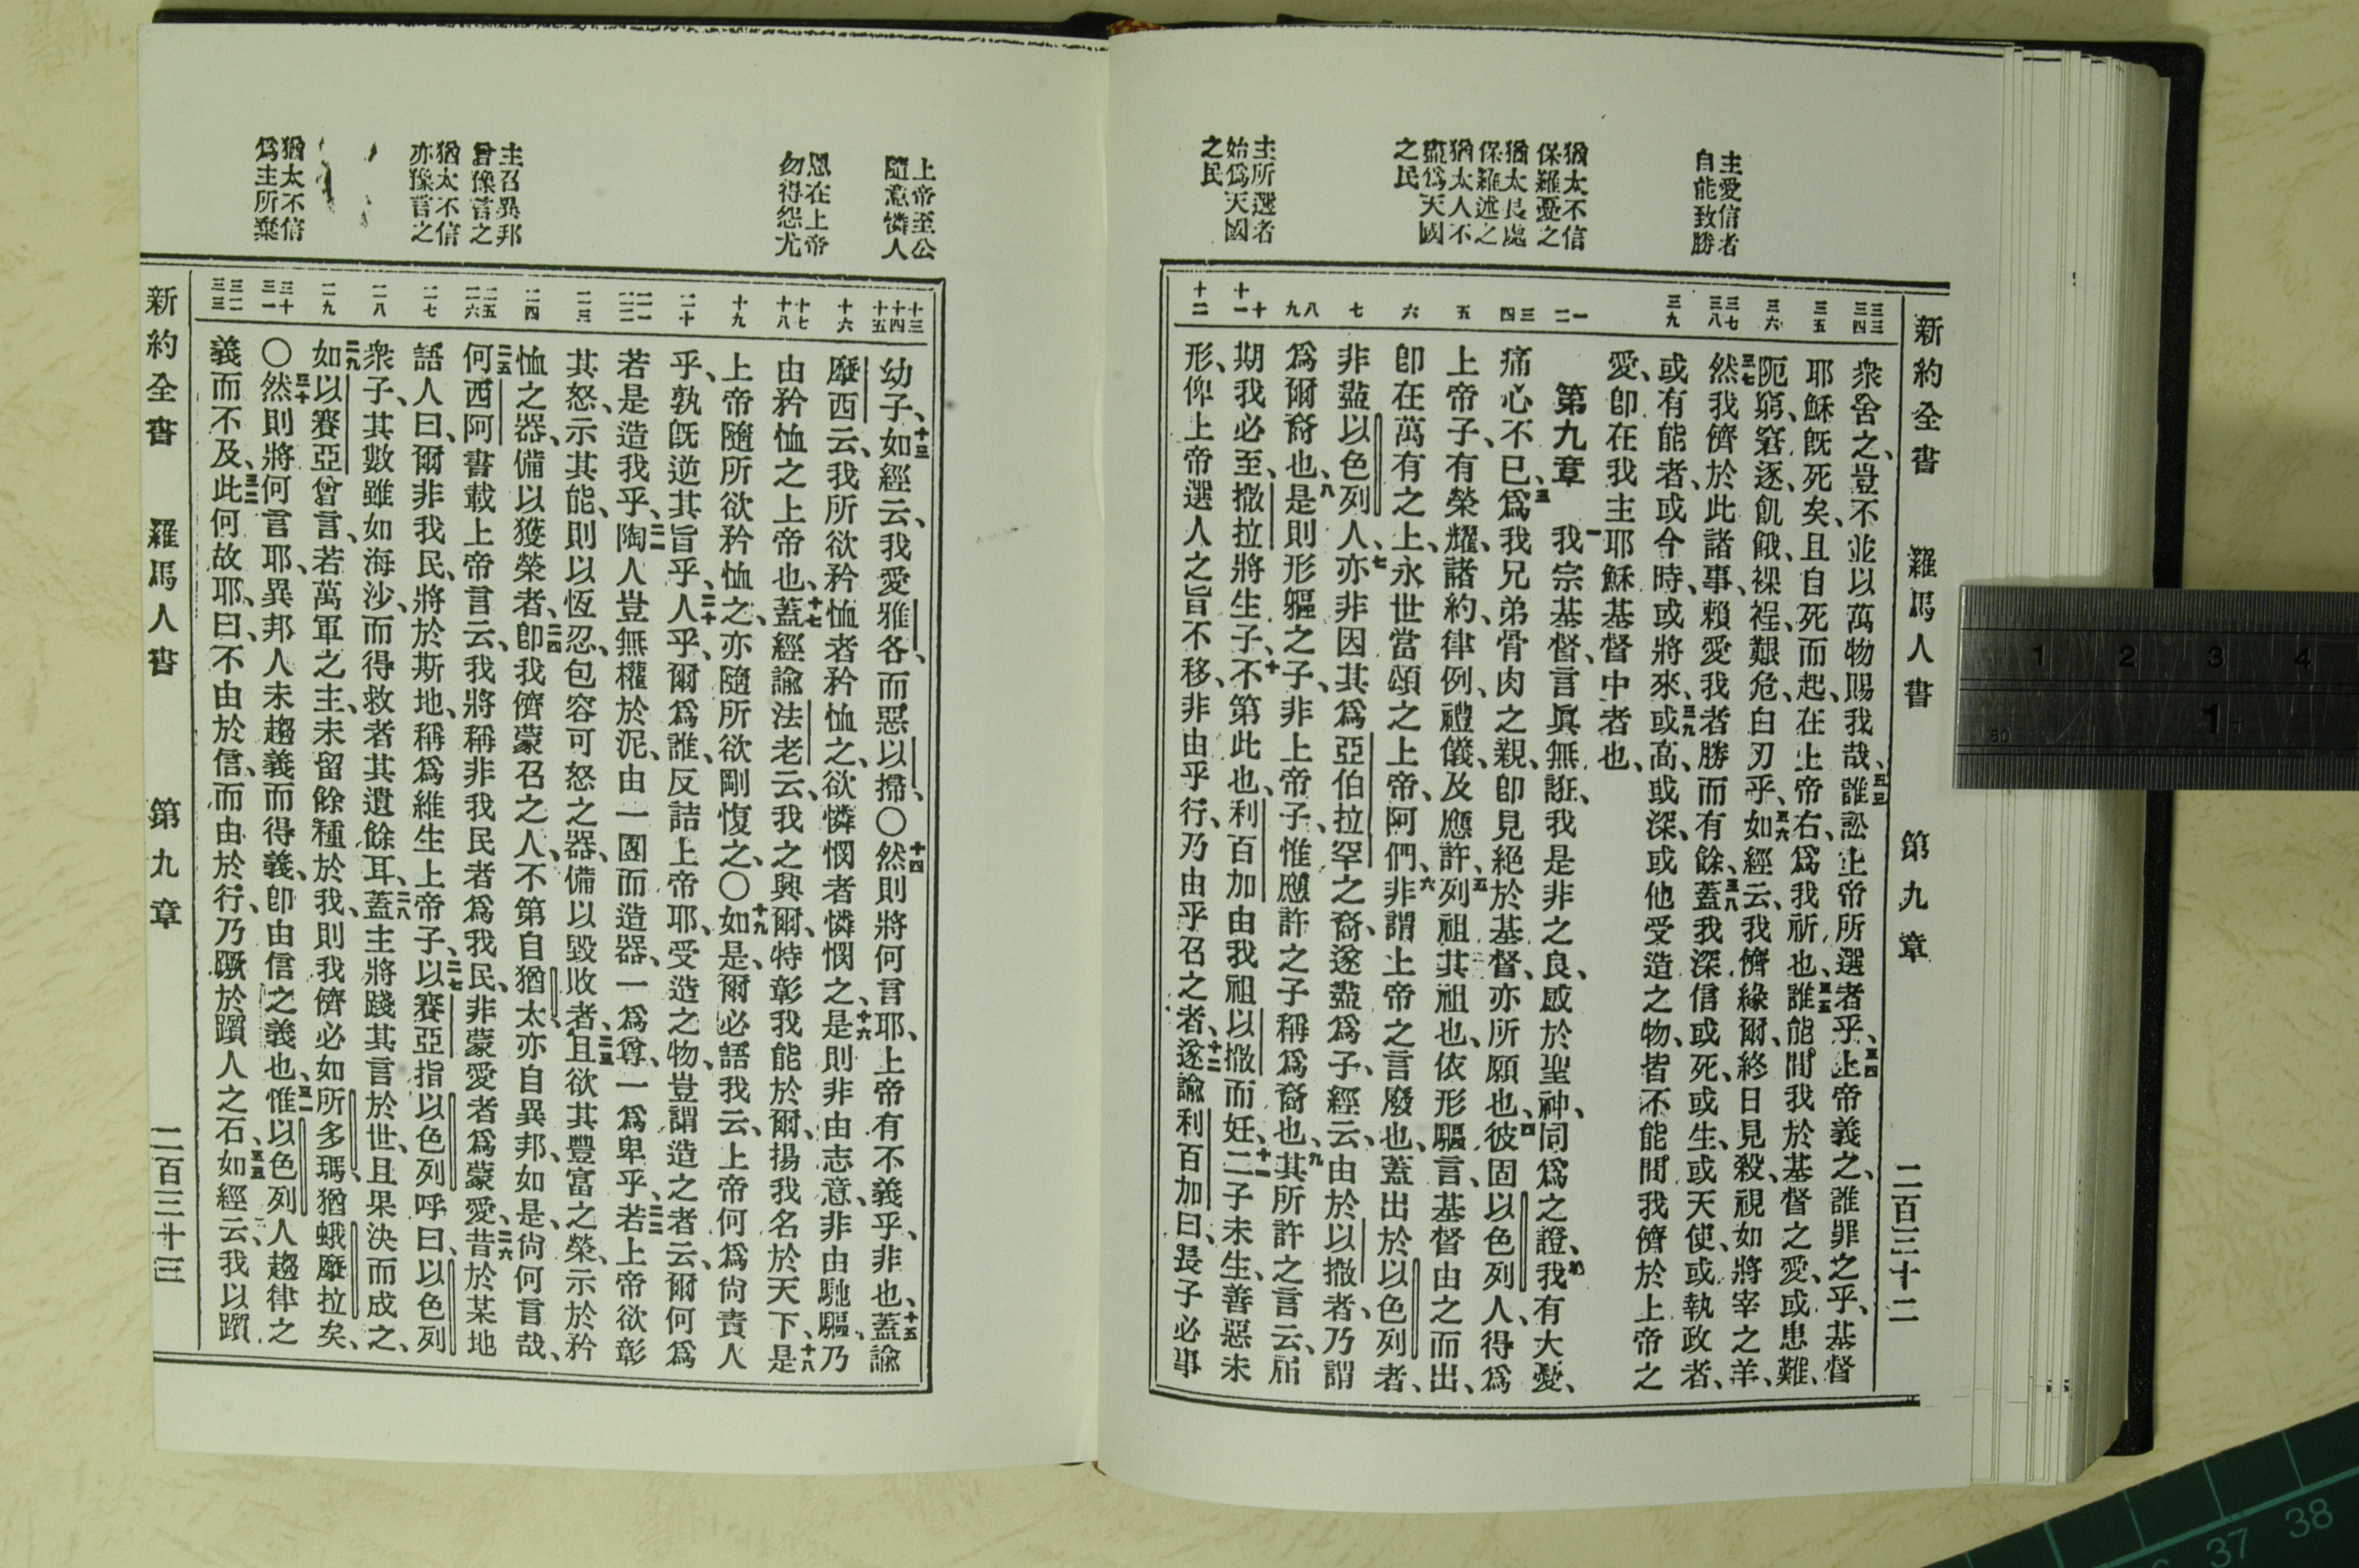 新約全書 羅馬人書 第九章 二百三十二
主愛信者
自能致勝
猶太不信
保羅憂之
猶太長處
保羅述之
猶太人不
盡爲天國
之民
主所選者
始爲天國
之民
三三
三四
三五
三六
三七
三八
三九
一
二
三
四
五
六
七
八
九
十
十一
十二
衆舍之、豈不並以萬物賜我哉、三三誰訟上帝所選者乎、三四上帝義之、誰罪之乎、基督
耶穌旣死矣、且自死而起、在上帝右、爲我祈也、三五誰能間我於基督之愛、或患難、
阨窮、窘逐、飢餓、裸裎、艱危、白刃乎、三六如經云、我儕緣爾、終日見殺、視如將宰之羊、
三七然我儕於此諸事、賴愛我者勝而有餘、三八蓋我深信或死、或生、或天使、或執政者、
或有能者、或今時、或將來、三九或高、或深、或他受造之物、皆不能間我儕於上帝之
愛、卽在我主耶穌基督中者也、
第九章 一我宗基督、言眞無誑、我是非之良、感於聖神、同爲之證、二我有大憂、
痛心不已、三爲我兄弟骨肉之親、卽見絕於基督、亦所願也、四彼固以色列人、得爲
上帝子、有榮耀、諸約、律例、禮儀、及應許、五列祖其祖也、依形軀言、基督由之而出、
卽在萬有之上、永世當頌之上帝、阿們、六非謂上帝之言廢也、蓋出於以色列者、
非盡以色列人、七亦非因其爲亞伯拉罕之裔、遂盡爲子、經云、由於以撒者、乃謂
爲爾裔也、八是則形軀之子、非上帝子、惟應許之子稱爲裔也、九其所許之言云、屆
期我必至、撒拉將生子、十不第此也、利百加由我祖以撒而妊、十一二子未生、善惡未
形、俾上帝選人之旨不移、非由乎行、乃由乎召之者、十二遂諭利百加曰、長子必事
上帝至公
隨意憐人
恩在上帝
勿得怨尤
主召異邦
曾豫言之
猶太不信
亦豫言之
猶太不信
爲主所棄
十三
十四
十五
十六
十七
十八
十九
二十
二一
二二
二三
二四
二五
二六
二七
二八
二九
三十
三一
三二
三三
幼子、十三如經云、我愛雅各、而惡以掃、〇十四然則將何言耶、上帝有不義乎、非也、十五蓋諭
摩西云、我所欲矜恤者矜恤之、欲憐憫者憐憫之、十六是則非由志意、非由馳驅、乃
由矜恤之上帝也、十七蓋經諭法老云、我之興爾、特彰我能於爾、揚我名於天下、十八是
上帝隨所欲矜恤之、亦隨所欲剛愎之、〇十九如是、爾必語我云、上帝何爲尙責人
乎、孰旣逆其旨乎、二十人乎、爾爲誰、反詰上帝耶、受造之物、豈謂造之者云、爾何爲
若是造我乎、二一陶人豈無權於泥、由一團而造器、一爲尊、一爲卑乎、二二若上帝欲彰
其怒、示其能、則以恆忍、包容可怒之器、備以毀敗者、二三且欲其豐富之榮、示於矜
恤之器、備以獲榮者、二四卽我儕蒙召之人、不第自猶太、亦自異邦、如是、尙何言哉、
二五何西阿書載上帝言云、我將稱非我民者爲我民、非蒙愛者爲蒙愛、二六昔於某地
語人曰、爾非我民、將於斯地、稱爲維生上帝子、二七以賽亞指以色列呼曰、以色列
衆子、其數雖如海沙、而得救者其遺餘耳、二八蓋主將踐其言於世、且果決而成之、
二九如以賽亞曾言、若萬軍之主、未留餘種於我、則我儕必如所多瑪猶蛾摩拉矣、
〇三十然則將何言耶、異邦人未趨義而得義、卽由信之義也、三一惟以色列人趨律之
義而不及、三二此何故耶、曰、不由於信、而由於行、乃蹶於躓人之石、三三如經云、我以躓
新約全書 羅馬人書 第九章 二百三十三
1 2 3 4
1
37 38